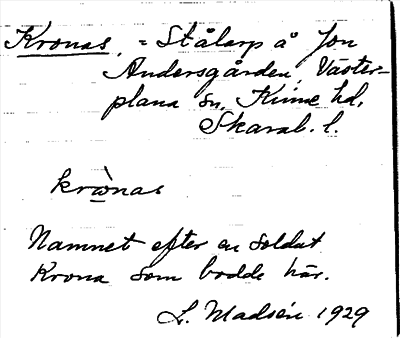 Kronas, = Stålarp å Jon
Andersgården, Väster-
plana sn, Kinne hd,
Skarab. l.
krɷ̀nas
Namnet efter en soldat
Krona som bodde här.
L. Madsén 1929